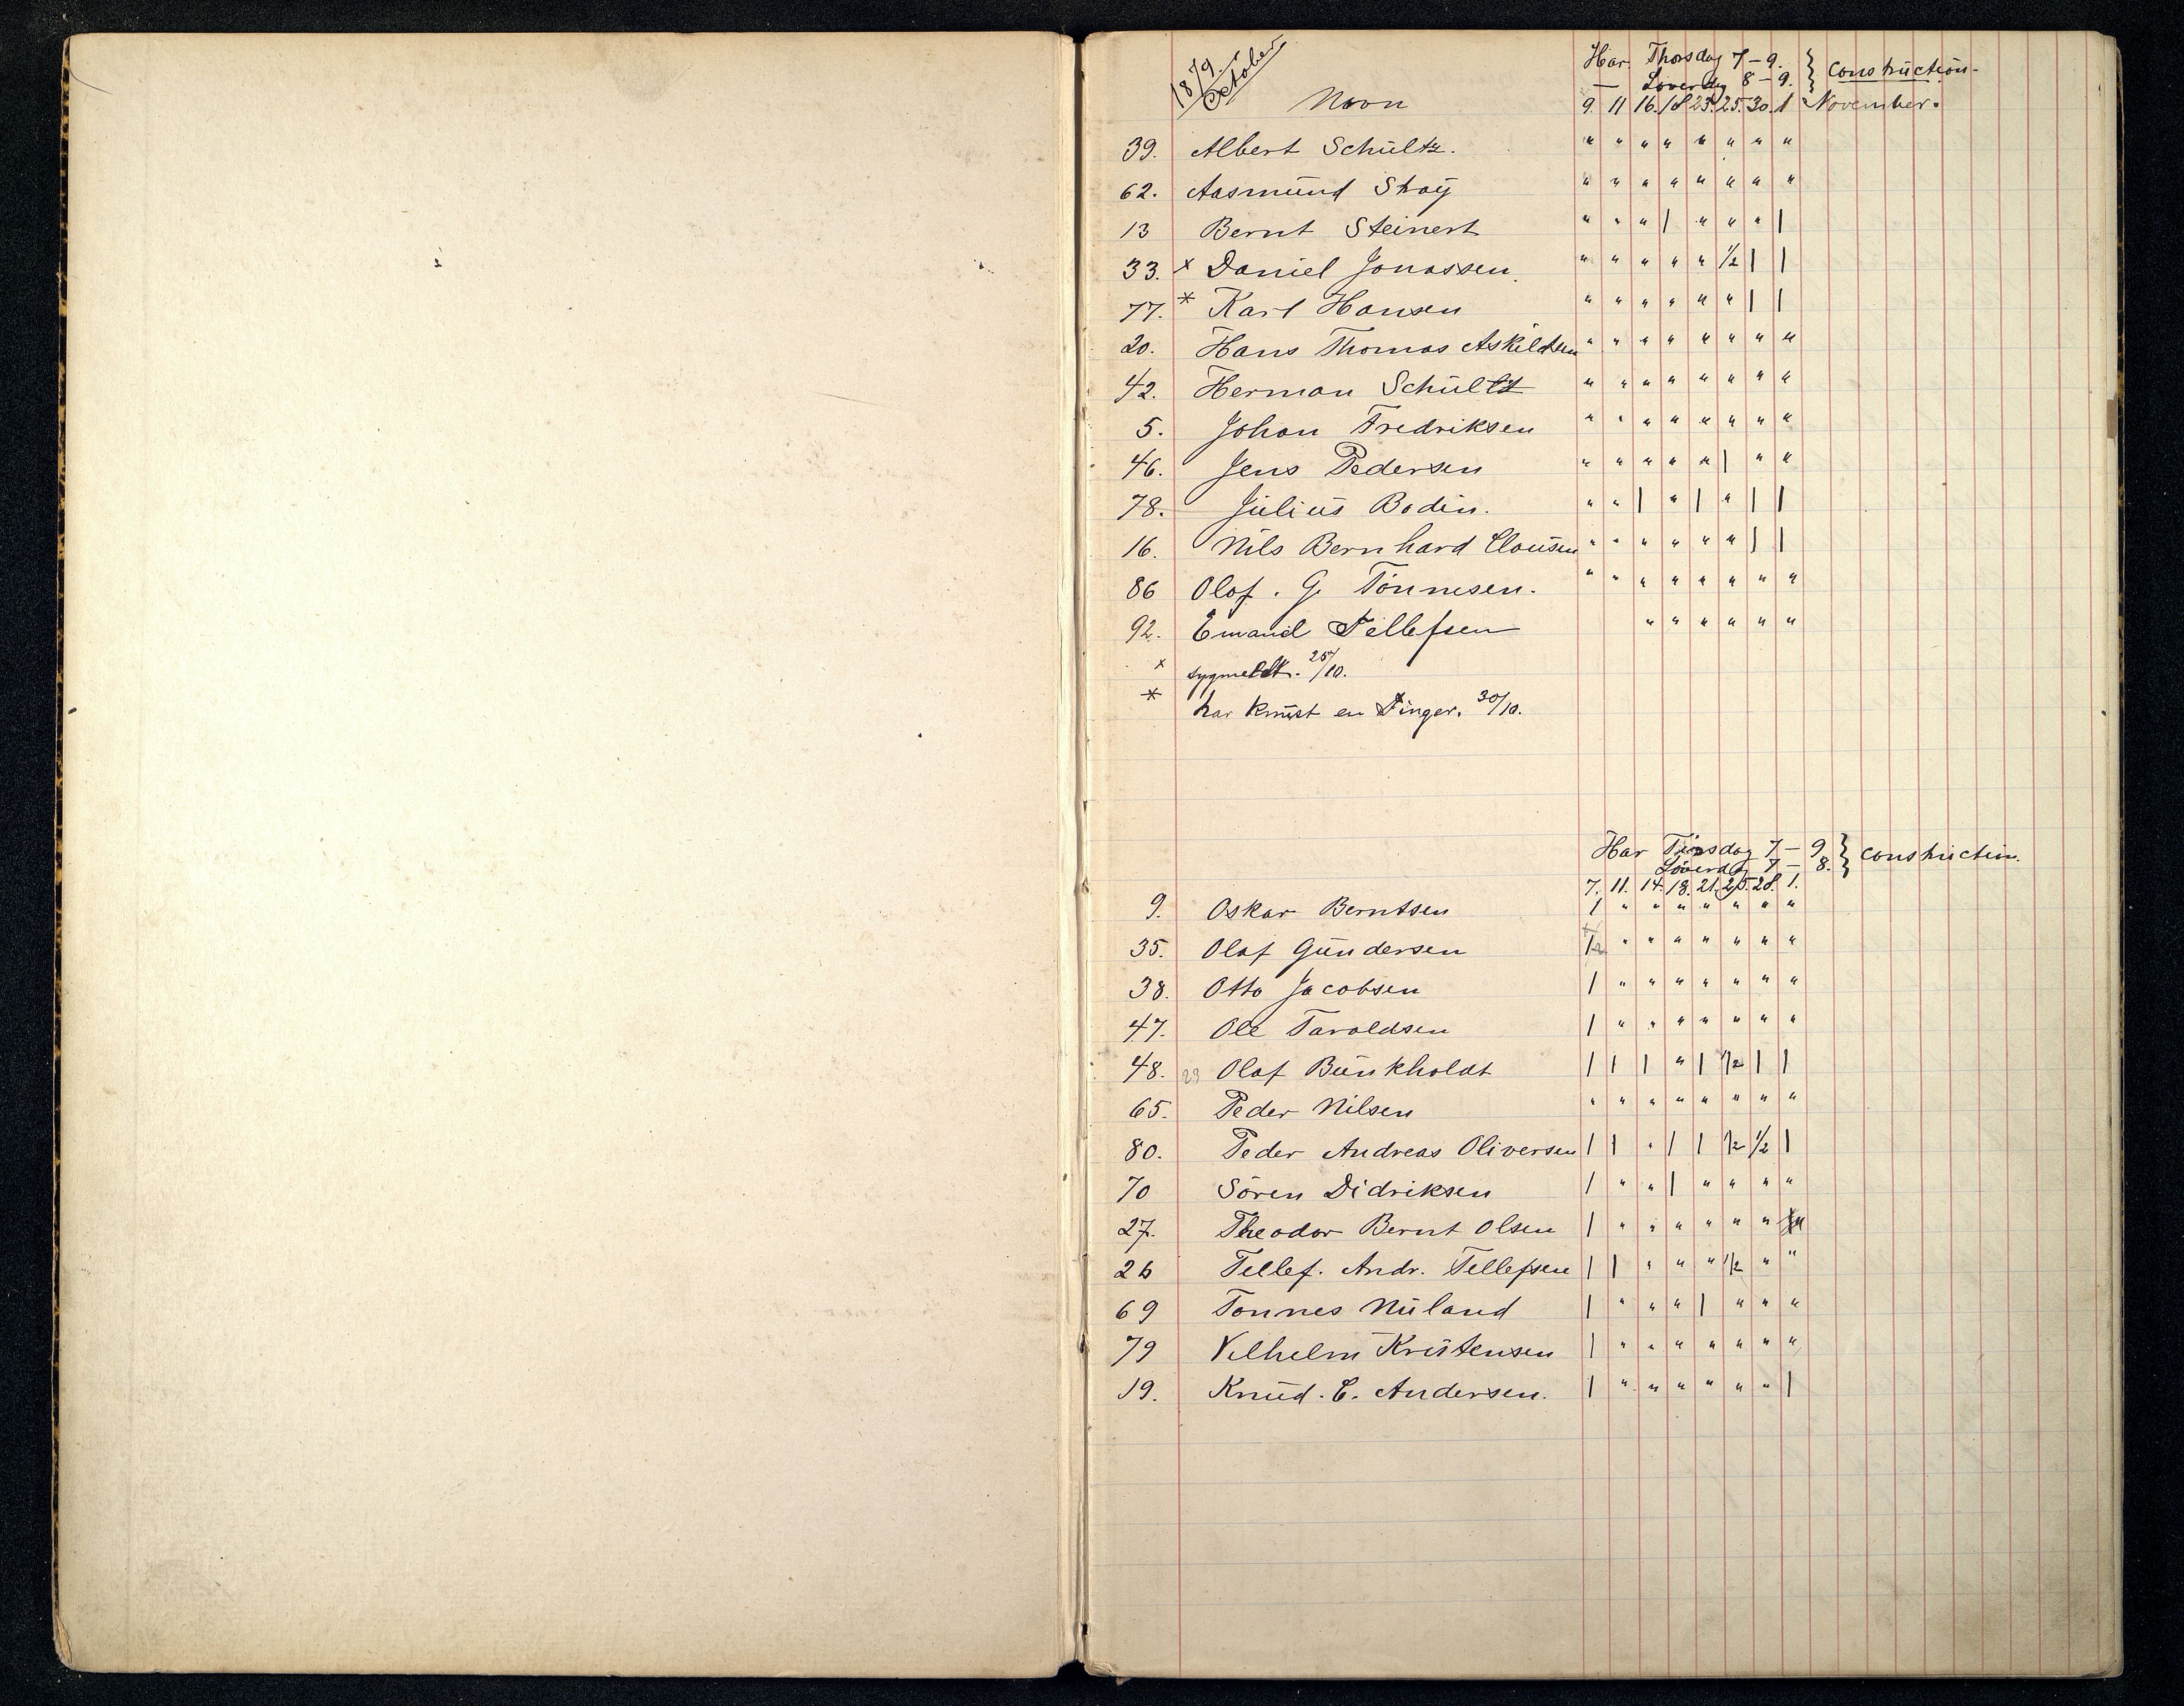 1879. October
Har. Thorsdag 7 - 9. } Construction.
— Löverdag 8 - 9. }
Navn 9. 11 16. 18 23. 25. 30. 1 November.
39. Albert Schültz. " " " " " " " "
62. Aasmünd Stray " " " " " " " "
13 Bernt Steinert " " " | " " " |
33. x Daniel Jonassen. " " " " " 1/2 | |
77. * Karl Hansen " " " " " " | |
20. Hans Thomas Askildsen " " " " " " " "
42. Herman Schültz " " " " " " " "
5. Johan Fredriksen " " " " " " " "
46. Jens Pedersen " " " " " | " "
78. Jülius Bodin. " " | " | " | |
16. Nils Bernhard Claüsen " " " " " " | |
86 Olaf. G. Tönnesen. " " " " " " " "
92. Emanüel Tellefsen " " " " " "
x sygmeldt. 25/10.
* har knüst en Finger. 30/10.
Har Tirsdag 7 - 9 } Construction.
Löverdag 7 - 8. }
7. 11. 14. 18. 21. 25. 28. 1.
9. Oskar Berntsen | " " " " " " "
35. Olaf Gündersen 1/2 " " " " " " "
38. Otto Jacobsen | " " " " " " "
47. Ole Taraldsen | " " " " " " "
48. 23 Olaf Bünkholdt | | | " | 1/2 | |
65. Peder Nilsen " " " " " " " "
80. Peder Andreas Oliversen | | " | | 1/2 1/2 |
70 Sören Didriksen | " " | " " " "
27. Theodor Bernt Olsen | " " " " " " "
26 Tellef. Andr. Tellefsen | | " " " 1/2 " "
69 Tönnes Nüland | " " " | " " "
79 Vilhelm Kristensen | " " " " " " "
19. Knüd. C. Andersen. | " " " " " " |